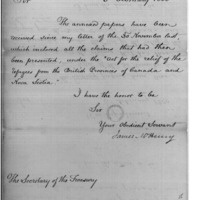 Sir
The annexed papers have been
received since my letter of the 3d November last,
which inclosed all the claims that had then
been presented, under the "Act for the relief of the
Refugees from the British Provinces of Canada and
Nova Scotia"
I have the honor to be
Sir
Your Obedient Servant
James McHenry
The Secretary of the Treasury